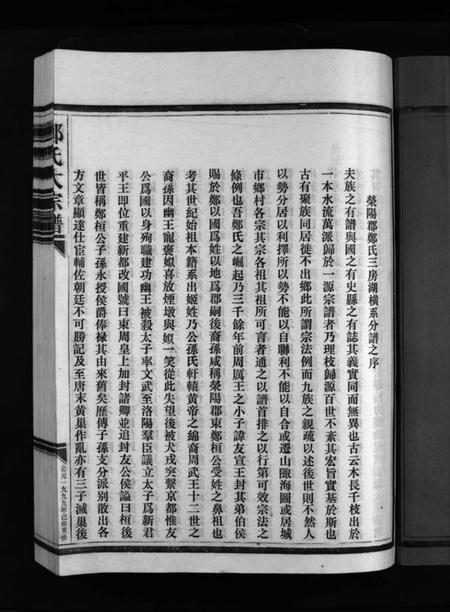 滎陽郡鄭氏三房湖橫系分譜之序
夫族之有譜與國之有史縣之有誌其義實同而無異也古云木長千枝出於
一本水流萬派歸於一源宗譜者乃理枝歸源百世不紊其宏旨實基於斯也
古有聚族同居徙不出鄉此所謂宗法例而九族之親疏以述後世則不然人
以勢分居以利擇所以勢不能以自聯利不能以自合或遷山陬海圖或居城
市鄉村各宗其宗各祖其祖所可言者通之以譜首排之以行第可效宗法之
條例也吾鄭氏之崛起乃三千餘年前周厲王之小子諱友宣王封其弟伯侯
賜於鄭以國爲姓以地爲郡嗣後裔孫咸稱滎陽郡東鄭桓公受姓之鼻祖也
考其世紀始祖本籍系出姬姓乃公孫氏軒轅黃帝之綿裔周武王十二世之
裔孫因幽王寵褒姒喜放煙墩與姒一笑從此失望後被犬戎突繫京都惟友
公爲國以身殉職建功幽王被殺太子寧文武至洛陽羣臣議立太子爲新君
平王即位重建新都改國號曰東周皇上加封諸卿並追封友公侯謚曰桓後
世皆稱鄭桓公子孫永授侯爵俸祿其由來舊矣歷傳子孫支分派别散出各
方文章顯達仕宦輔佐朝廷不可勝記及至唐末黃巢作亂亦有三子滅巢後
鄭氏大宗譜
公元一九九九年己卯重修